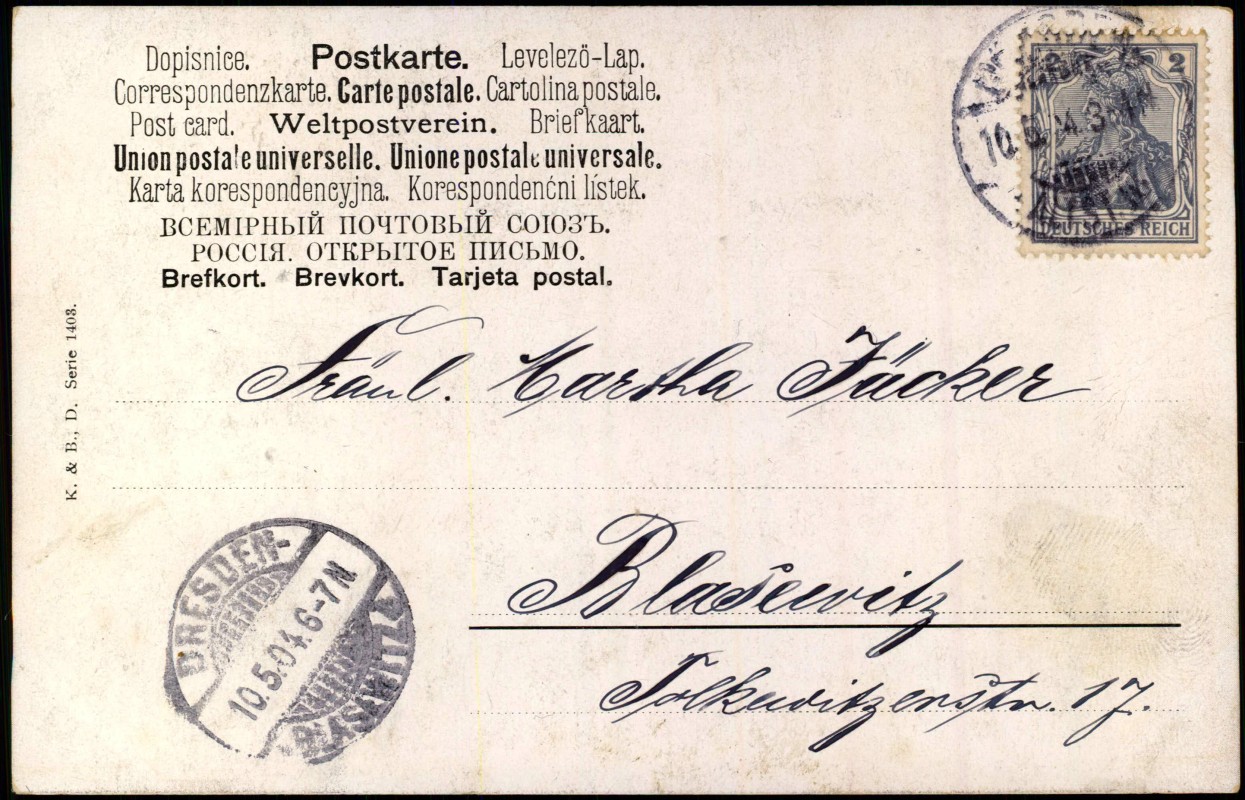 Dopisnice. Postkarte. Levelező-Lap.
Correspondenzkarte. Carte postale. Cartolina postale.
Post card. Weltpostverein. Briefkaart.
Union postale universelle. Unione postale universale.
Karta korespondencyjna. Korespondenćni lístek.
ВСЕМІРНЫЙ ПОЧТОВЫЙ СОЮЗЪ.
РОССІЯ. ОТКРЫТОЕ ПИСЬМО.
Brefkort. Brevkort. Tarjeta postal.
2
DEUTSCHES REICH
10.5.04.3-4N
K. & B., D. Serie 1403.
Fräul. Martha Jäcker
Blasewitz
Tolkewitzerstr. 17.
DRESDEN-
10.5.04.6-7N
BLASEWITZ